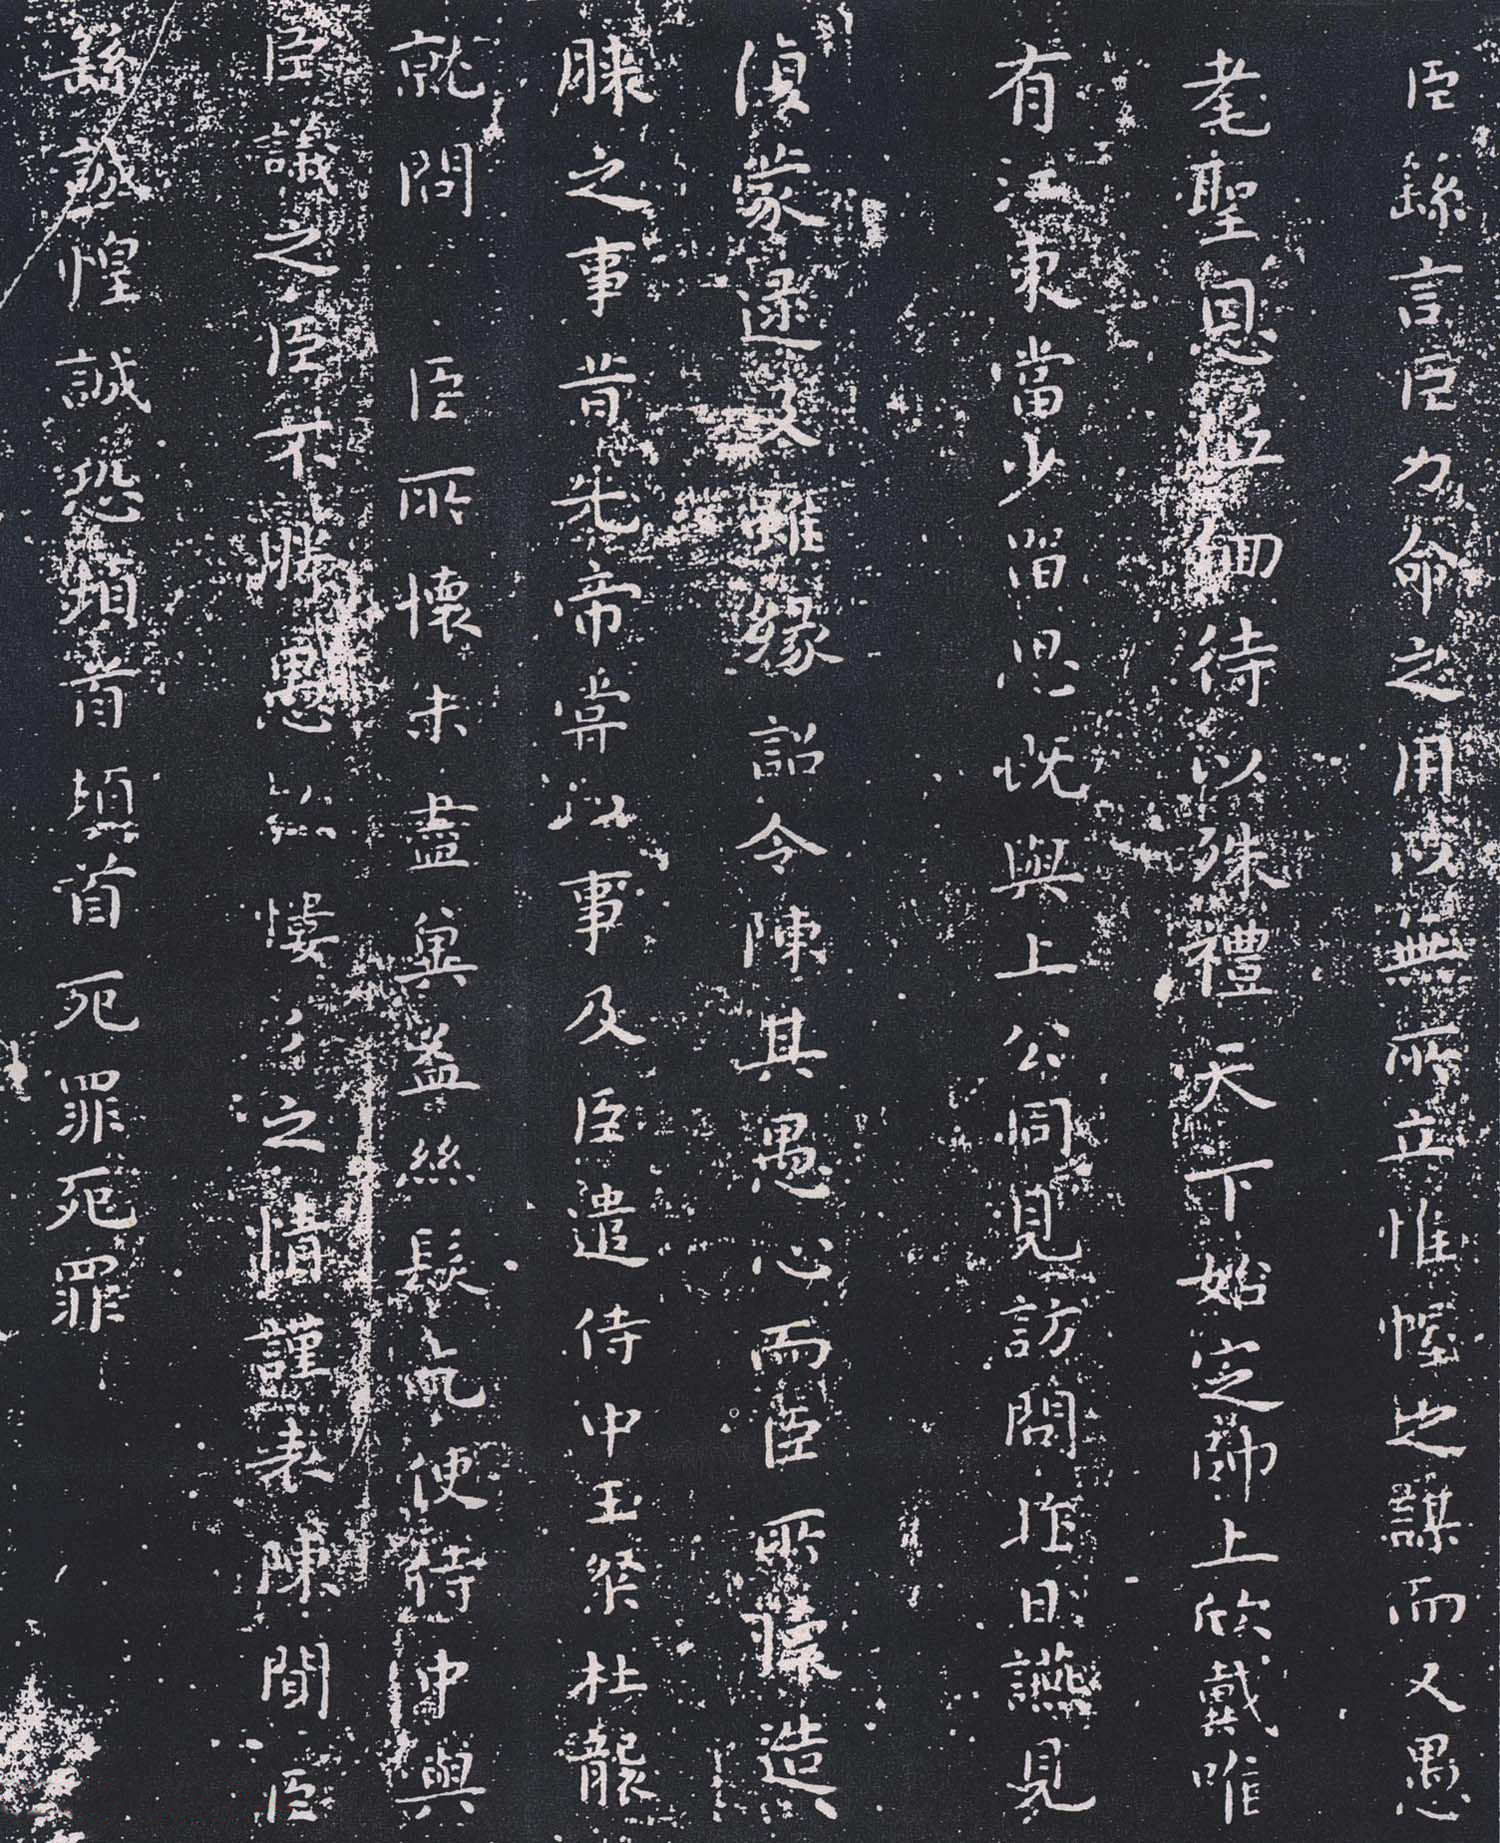 臣繇言臣力命之用以無所立惟幄之謀而又愚
耄聖恩低佪待以殊禮天下始定師上欣戴唯
有江東當少留思既與上公同見訪問昨日讌見
復蒙逮及雖緣詔令陳其愚心而臣所懷造
膝之事昔先帝嘗以事及臣遣侍中王粲杜襲
就問臣所懷未盡奚益絲髮乞使侍中與
臣議之臣不勝愚以慺慺之情謹表陳聞臣
繇誠惶誠恐頓首頓首死罪死罪